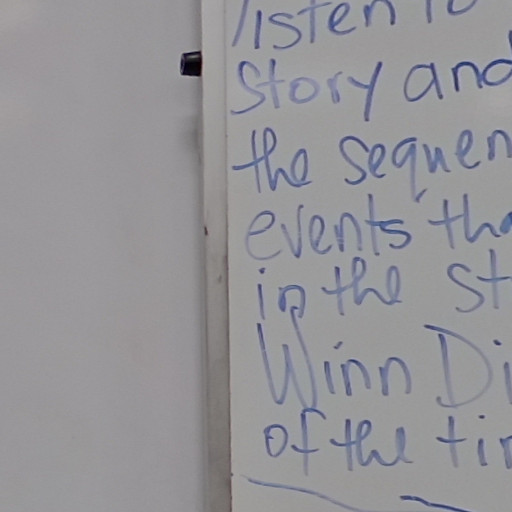 listen to
story and
the sequen
events tha
in the st
Winn Di
of the tim